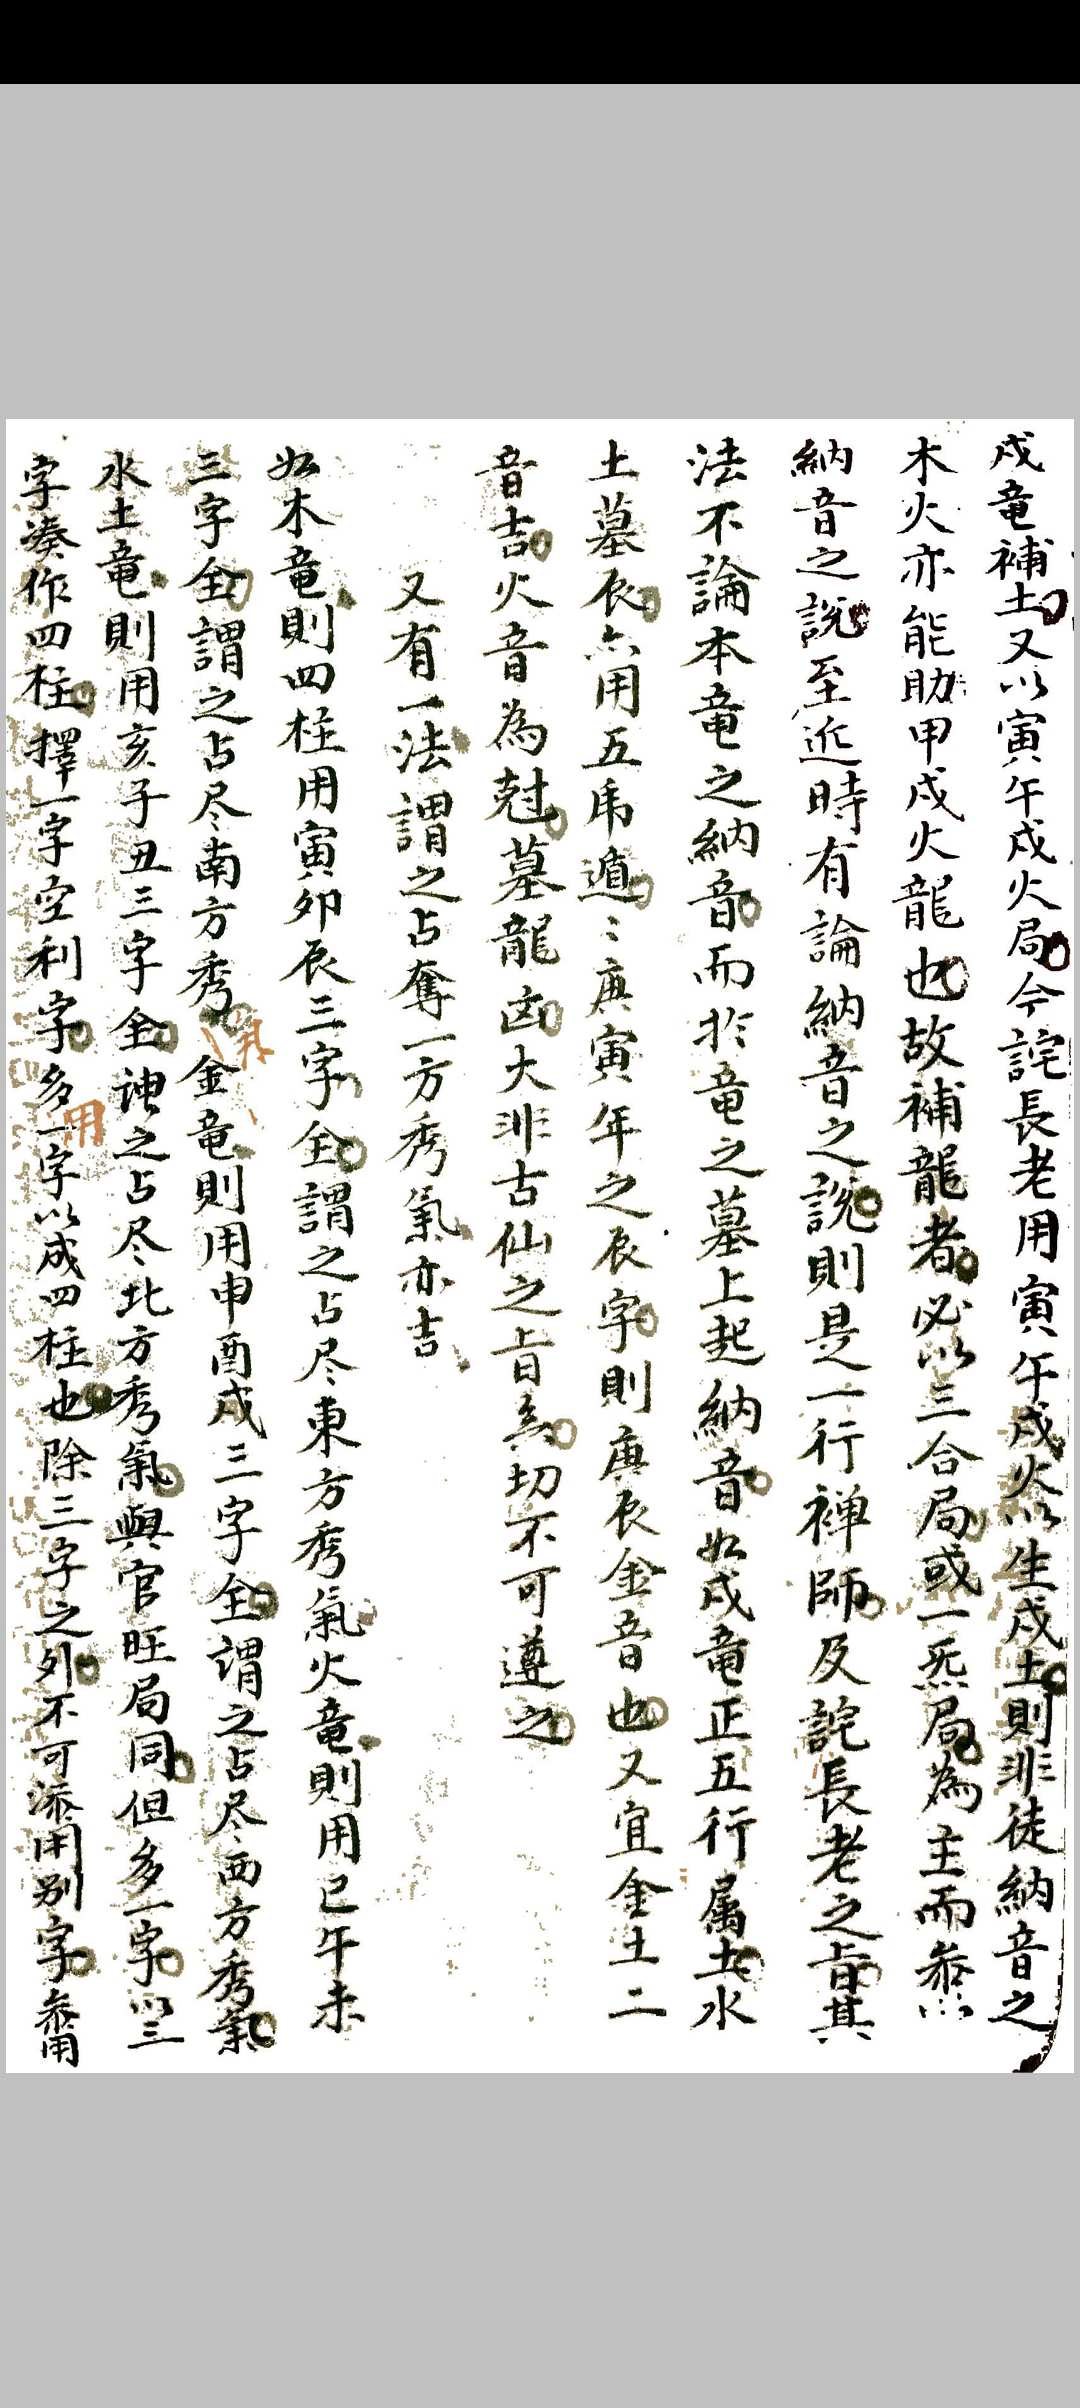 戌竜補土又以寅午戌火局今詫長老用寅午戌火以生戌土則非徒納音之
木火亦能助甲戌火龍也故補龍者必以三合局或一炁局為主而叅以
納音之説至近時有論納音之説則是一行禅師及詫長老之旨其
法不論本竜之納音而於竜之墓上起納音如戌竜正五行属土水
土墓辰六用五乕遁〻庚寅年之辰字則庚辰金音也又宜金土二
音吉火音為尅墓龍凶大非古仙之旨矣切不可遵之
又有一法謂之占奪一方秀氣亦吉
如木竜則四柱用寅卯辰三字全謂之占尽東方秀氣火竜則用巳午未
三字全謂之占尽南方秀金竜則用申酉戌三字全谓之占尽西方秀氣
水土竜則用亥子丑三字全谓之占尽北方秀氣與官旺局同但多一字以三
字凑作四柱擇一字空利字多一字以成四柱也除三字之外不可添用别字叅用